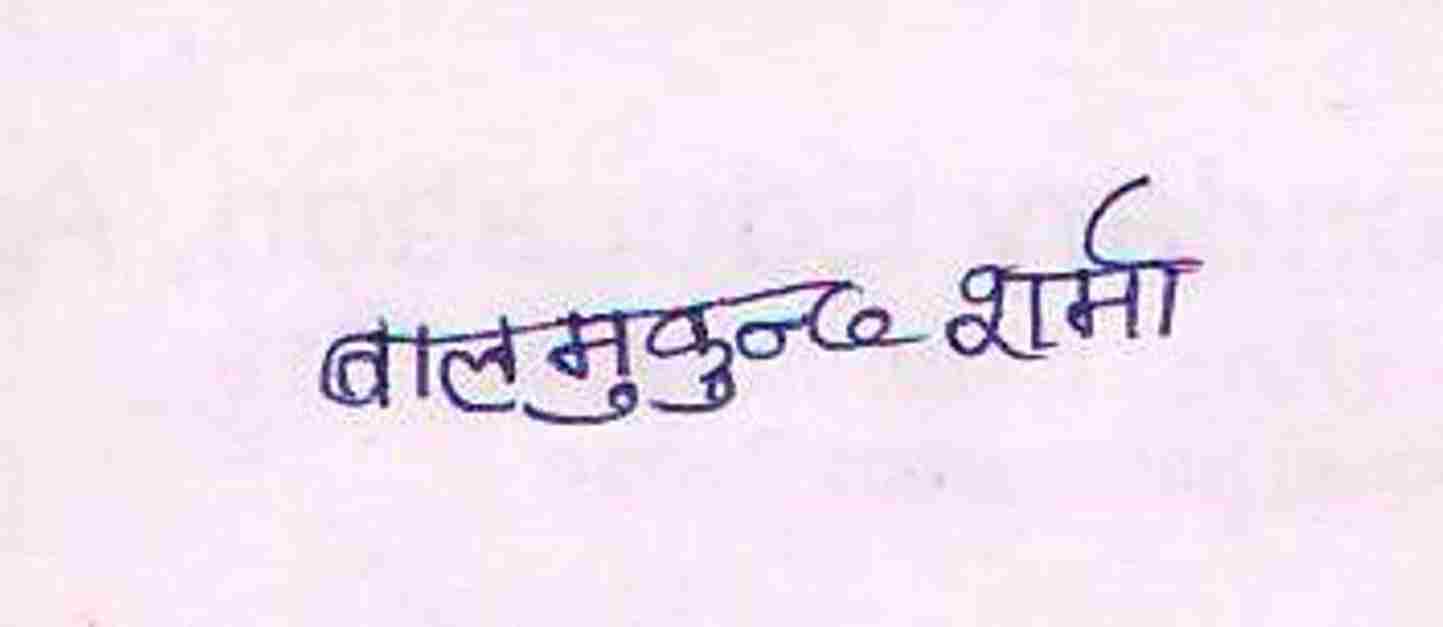 बालमुकुन्द शर्मा